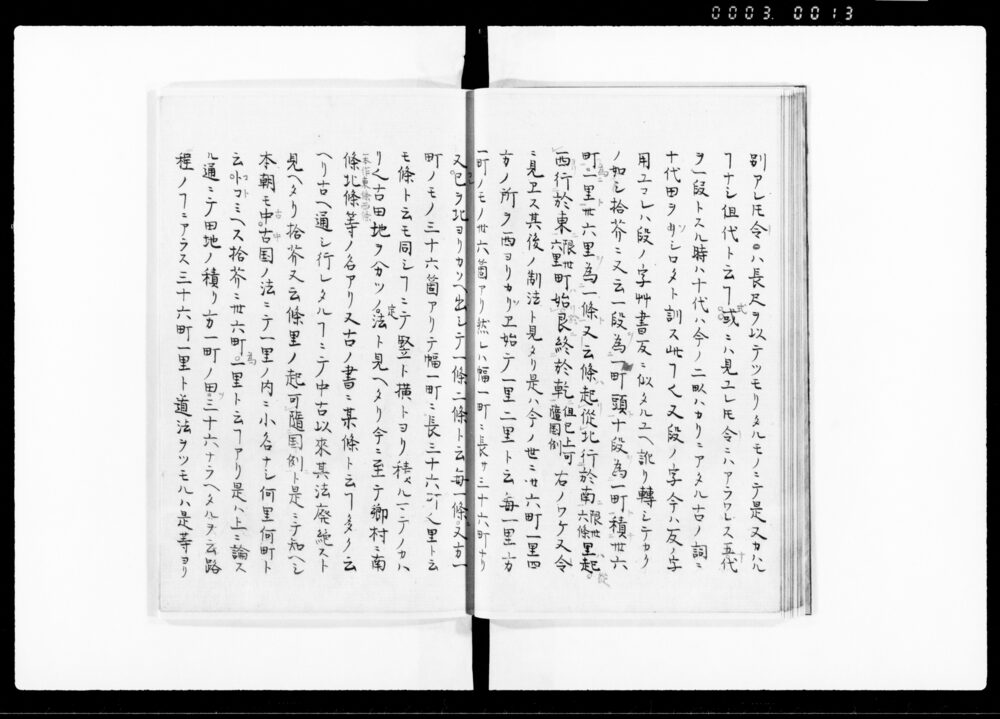 0003. 0013
別アレ𪜈令ニハ長尺ヲ以テツモリタルモノニテ是又カハル
ヿナシ但代ト云ヿ或ニハ見エレ𪜈令ニハアラワレス五代
ヲ一段トスル時ハ十代ハ今ノ二畝ハカリニアタル古ノ詞ニ
十代田ヲソシロタト訓ス此ヿ也又段ノ字今ハ反ノ字
用ユコレハ段ノ字艸書反ニ似タルユヘ訛リ轉シテカク
ノ如シ拾芥ニ又云一段為一町頭十段為一町積卅六
町為一里卅六里為一條又云條起從北行於南限卅六條里起
西行於東限卅六里町始艮終於乾但已上可隨国例右ノワケ又令
ニ見エス其後ノ制法ト見タリ是ハ今ノ世ニ卅六町一里四
方ノ所ヲ西ヨリカソヱ始テ一里二里ト云毎一里ニ方
一町ノモノ卅六箇アリ然レハ幅一町ニ長サ三十六町ナリ
又已ヲ北ヨリカソヘ出シテ一條二條ト云毎一條又方一
町ノモノ三十六箇アリテ幅一町ニ長三十六町也里ト云
モ條ト云モ同シヿニテ竪ト横トヨリ積ルニテノカハ
リ也古田地ヲ分ツノ定法ト見ヘタリ今ニ至テ郷村ニ南
條北條等ノ名アリ又古ノ書ニ某條ト云ヿ多ク云
ヘリ古ヘ通シ行レタルヿニテ中古以來其法廃絶スト
見ヘタリ拾芥又云條里ノ起可隨国例ト是ニテ知ヘシ
本朝モ中古国ノ法ニテ一里ノ内ニ小名ナシ何里何町ト
云コトミヘス拾芥ニ卅六町為一里ト云ヿアリ是ハ上ニ論ス
ル通ニテ田地ノ積リ方一町ノ田三十六ナラヘタルヲ云路
程ノヿニアラス三十六町一里ト道法ヲツモルハ是等ヨリ